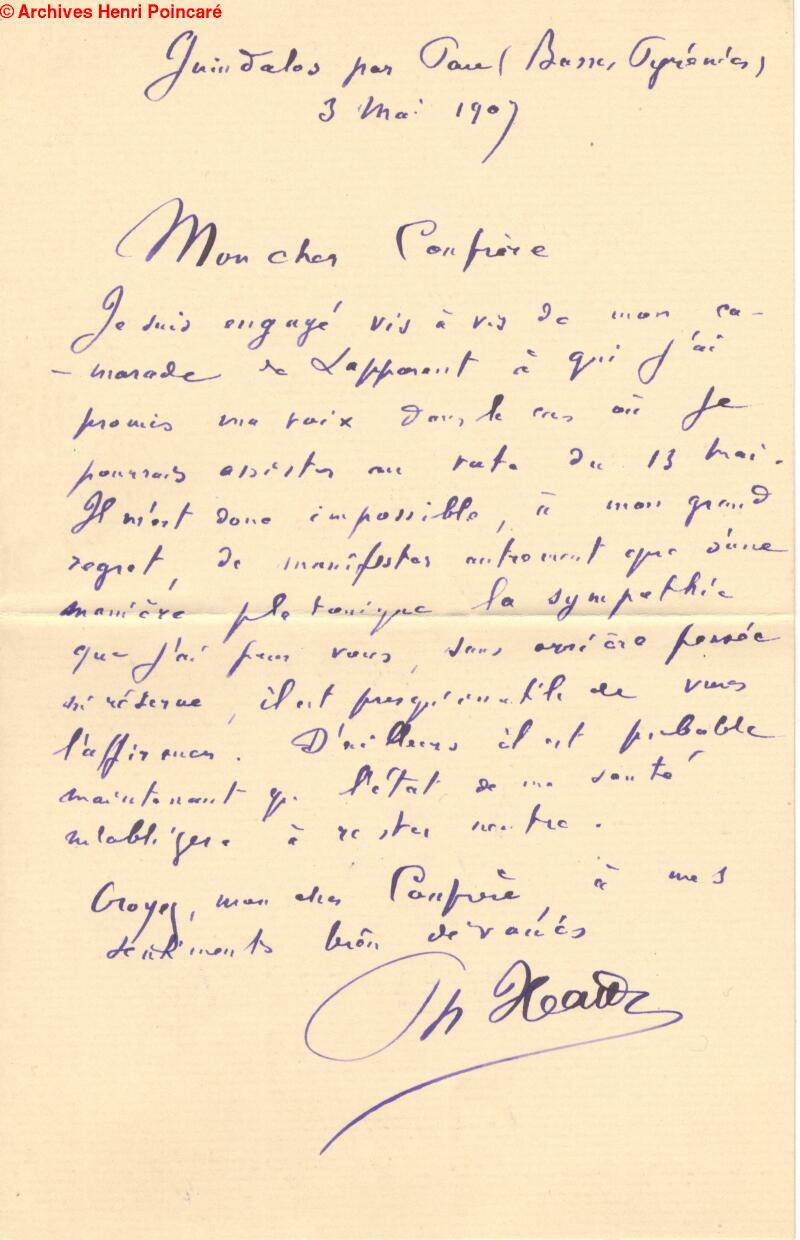 © Archives Henri Poincaré
Guindalos par Pau (Basses Pyrénées)
3 Mai 1907
Mon cher Confrère
Je suis engagé vis à vis de mon ca-
- marade de Lapparent à qui j'ai
promis ma voix dans le cas où je
pourrais assister au vote du 13 mai.
Il m'est donc impossible, à mon grand
regret, de manifester autrement que d'une
manière platonique la sympathie
que j'ai pour vous, sans arrière pensée
ni réserve, il est presqu'inutile de vous
l'affirmer. D'ailleurs il est probable
maintenant que l'état de ma santé
m'obligera à rester neutre.
Croyez, mon cher Confrère, à mes
sentiments bien dévoués
Th